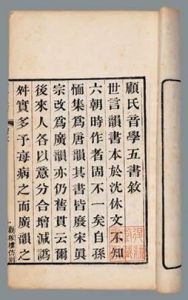 顧氏音學五書敘
世言韻書本於沈休文不知
六朝時作者固不一矣自孫
愐集爲唐韻其書皆廢宋眞
宗改爲廣韻亦仍舊貫云爾
後來人各以意分合增減譌
舛實多予每病之而廣韻之